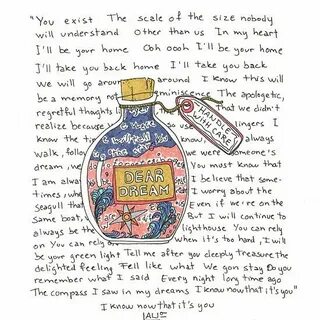 "You exist The scale of the size nobody
will understand Other than us In my heart
I'll be your home Ooh oooh I'll be your home
I'll take you back home I'll take you back
We will go around around I know this will
be a memory not reminiscence The apologetic,
regretful thoughts that we didn't
realize because lingers I
know the ti know, always
walk, follow we were someone's
dream, we You must know that
I am alwa I believe that some-
times, whe I worry about the
seagull that Even if we're on the
same boat, But I will continue to
always be the lighthouse You can rely
on You can rely on when it's too hard, I will
be your green light Tell me after you deeply treasure the
delighted feeling Fell like what We gon stay Do you
remember what I said Every night long time ago
The compass I saw in my dreams I know now that it's you"
I know now that it's you
HANDLE
WITH CARE
DEAR
DREAM